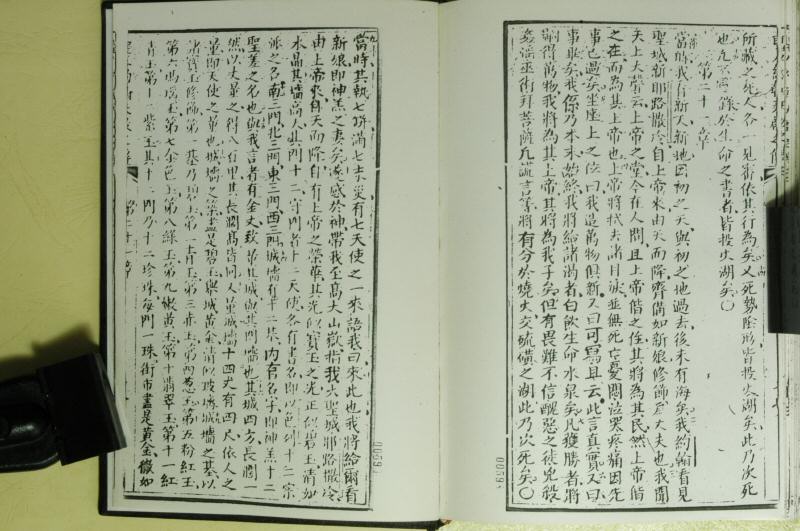 所藏之死人各一見審依其行為矣又死勢陰形皆投火湖矣此乃次死
也凡不寫錄於生命之書者皆投火湖矣〇
第二十一章
當時我有新天新地因初之天與初之地過去後未有海矣我約翰看見
聖城新耶路撒冷自上帝來由天而降齊備如新娘修飾會丈夫也我聞
天上大聲云上帝之堂今在人間且上帝偕之住其將為其民然上帝偕
之在而為其上帝也上帝將拭去諸目淚並無死亡憂悶泣哭疼痛因先
事已過矣坐座上之位曰我造萬物俱新又曰可寫且云此言真實又曰
事畢矣我係乃本末始終我將給諸渴者白飲生命水泉矣凡獲勝者將
嗣得萬物我將為其上帝其將為我子矣但有畏難不信醜惡之徒兇殺
姦淫巫術拜菩薩凡謊言等將有分於燒火交硫磺之湖此乃次死矣〇
當時其執七瓶滿七末災有七天使之一來語我曰來此也我將給爾看
新娘即神羔之妻矣遂感於神帶我至高大山嶽指我大聖城耶路撒冷
由上帝來自天而降自有上帝之榮華其光似寶玉之光正似碧玉清如
水晶其墻高大其門十二守門者十二天使名有書名即以色列十二宗
派之名南三門北三門東三門西三門城墻有十二基內有名字即神羔十二
聖差之名也與我言者有金丈致量其城與其門墻也其城四方長闊
然以丈量之得八百里其長濶高皆同又量城墻十四丈有四尺依人之
量即天使之量也城墻之築盡是碧玉與城黃金清似玻璃城墻之基以
諸寶玉修飾第一基乃碧玉第二青玉第三赤玉第四葱玉第五粉紅玉
第六瑪瑙玉第七金色玉第八綠玉第九嫩黃玉第十翡翠玉第十一紅
青玉第十二紫玉其十二門乃十二珍珠每門一珠街市盡是黃金儼如
第二十一章
0059